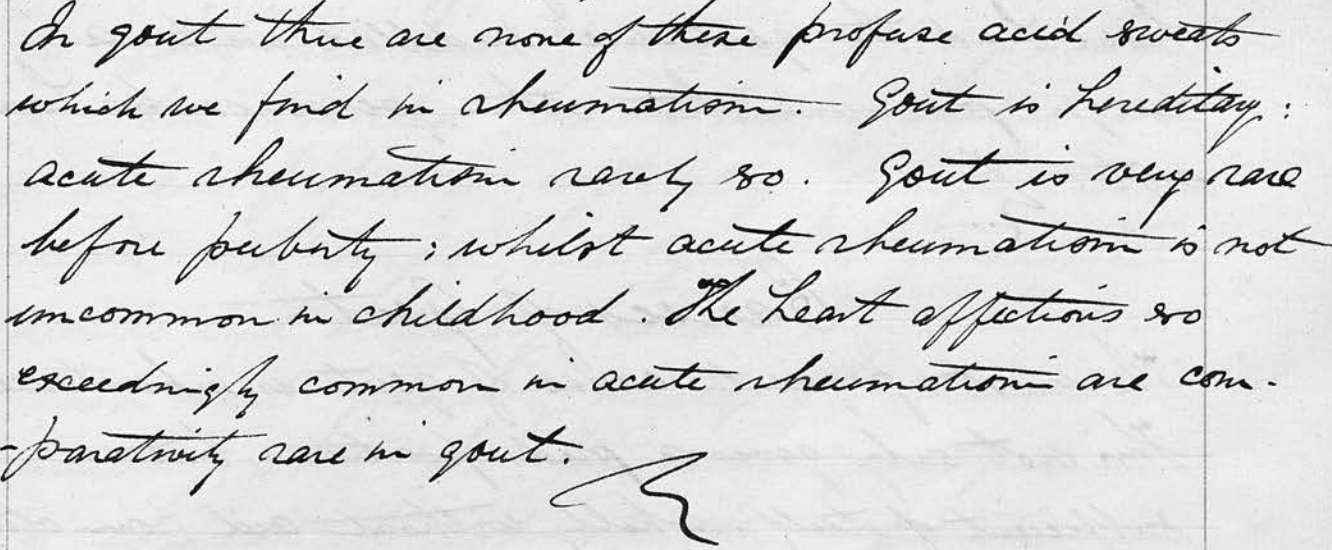 In gout there are none of these profuse acid sweats
which we find in rheumatism. Gout is hereditary:
acute rheumatism rarely so. Gout is very rare
before puberty; whilst acute rheumatism is not
uncommon in childhood. The heart affections so
exceedingly common in acute rheumatism are com-
-parativity rare in gout.